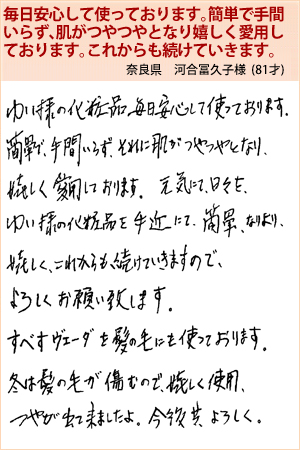 毎日安心して使っております。簡単で手間
いらず、肌がつやつやとなり嬉しく愛用し
ております。これからも続けていきます。
奈良県　河合冨久子様 (81才)
ゆい様の化粧品、毎日安心して使っております。
簡単で、手間いらず、それに肌がつやつやとなり、
嬉しく愛用しております。元気にて、日々を、
ゆい様の化粧品を手近にて、簡単、なにより、
嬉しく、これからも、続けていきますので、
よろしくお願い致します。
すべすべヴェーダを髪の毛にも使っております。
冬は髪の毛が傷むので、嬉しく使用、
つやが出て来ましたよ。今後共よろしく。